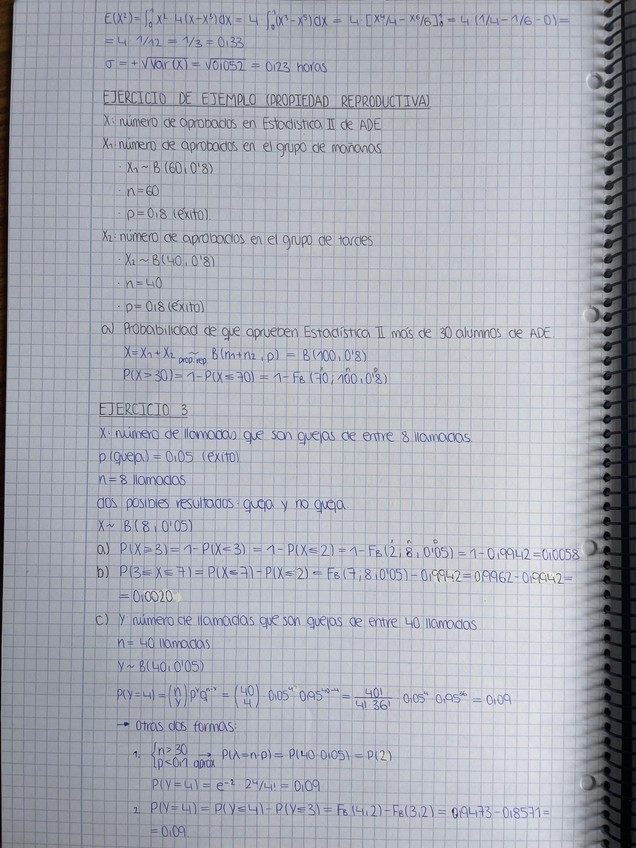 E(X²) = ∫₀¹ x² · 4(x-x³)dx = 4 ∫₀¹(x³-x⁵)dx = 4 [x⁴/4 - x⁶/6]₀¹ = 4 (1/4 - 1/6 - 0) =
= 4 · 1/12 = 1/3 = 0,33
σ = +√Var(X) = √0,052 = 0,23 horas
EJERCICIO DE EJEMPLO (PROPIEDAD REPRODUCTIVA)
X: número de aprobados en Estadística II de ADE
X₁: número de aprobados en el grupo de mañanas
· X₁ ~ B(60, 0'8)
· n=60
· p=0,8 (éxito)
X₂: número de aprobados en el grupo de tardes
· X₂ ~ B(40, 0'8)
· n=40
· p=0,8 (éxito)
a) Probabilidad de que aprueben Estadística II más de 30 alumnos de ADE.
X=X₁+X₂ ~ prop.rep. B(n₁+n₂, p) = B(100, 0'8)
P(X>30) = 1-P(X≤70) = 1-FB (70; 100, 0'8)
EJERCICIO 3
X: número de llamadas que son quejas de entre 8 llamadas
p (queja) = 0,05 (éxito)
n=8 llamadas
dos posibles resultados: queja y no queja
X ~ B(8, 0'05)
a) P(X≥3) = 1-P(X<3) = 1-P(X≤2) = 1-FB(2; 8, 0'05) = 1-0,9942=0,0058
b) P(3≤X≤7) = P(X≤7)-P(X≤2) = FB(7; 8, 0'05) - 0,9942 = 0,9962-0,9942=
= 0,0020
c) Y: número de llamadas que son quejas de entre 40 llamadas
n=40 llamadas
Y ~ B(40, 0'05)
P(Y=4) = (n y) pʸqⁿ⁻ʸ = (40 4) · 0,05⁴ · 0,95⁴⁰⁻⁴ = 40!/4! 36! · 0,05⁴ · 0,95³⁶ = 0,09
→ Otras dos formas:
1. {n>30 p<0,1 → aprox P(λ=n·p) = P(40·0,05) = P(2)
P(Y=4) = e⁻² · 2⁴/4! = 0,09
2. P(Y=4) = P(Y≤4) - P(Y≤3) = FB(4,2)-FB(3,2) = 0,9473-0,8571=
= 0,09